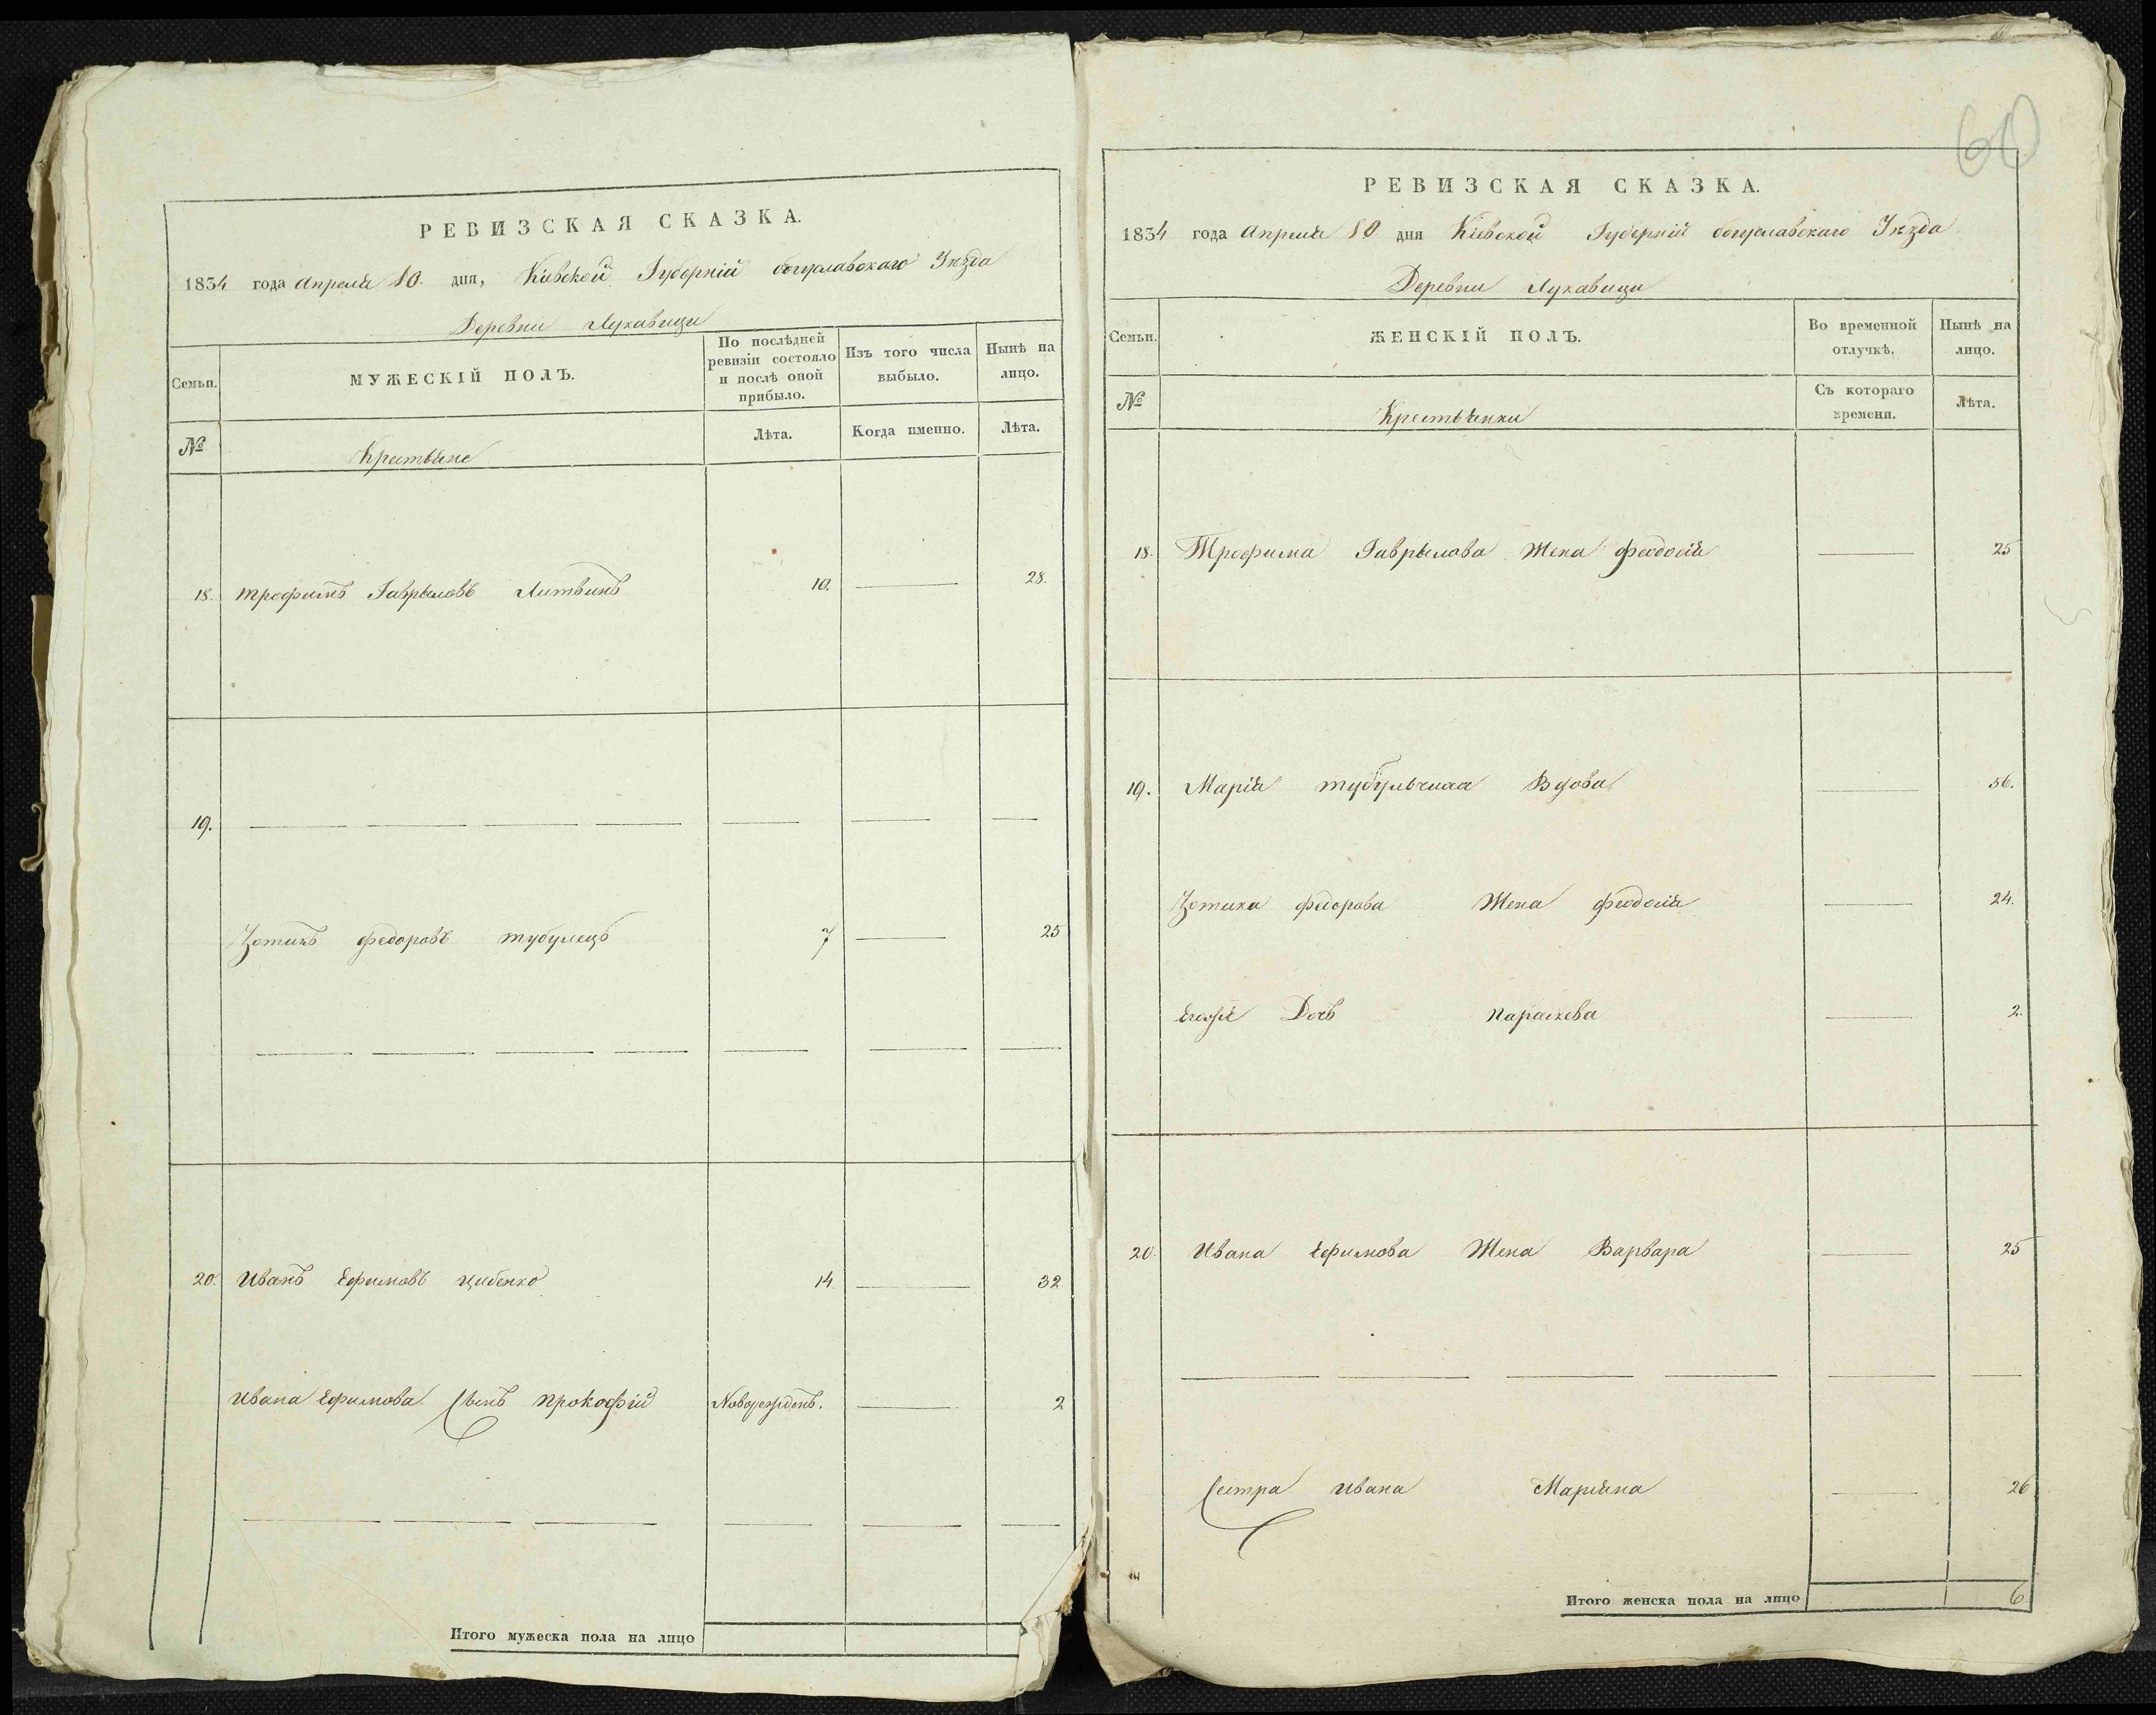 РЕВИЗСКАЯ СКАЗКА.
1834 года Апреля 10. дня, Кіевской Губерніи богуславскаго Уезда
Деревни Лукавици
Семьи. МУЖЕСКІЙ ПОЛЪ. По послѣдней ревизіи состояло и послѣ оной прибыло. Изъ того числа выбыло. Нынѣ на лицо.
№ Крестьяне Лѣта. Когда именно. Лѣта.
18. трофимъ Гаврыловъ Литвинъ 10. — 28.
19. — — — — — — —
Зотикъ федоровъ тубулецъ 7 — 25
— — — — — — —
20. Иванъ Ефимовъ цибенко 14. — 32
Ивана Ефимова Сынъ Прокофій Новорожденъ. — 2
— — — — — —
Итого мужеска пола на лицо
60
РЕВИЗСКАЯ СКАЗКА.
1834 года Апреля 10 дня Кіевской Губерній богуславскаго Уезда
Деревни Лукавици
Семьи. ЖЕНСКІЙ ПОЛЪ. Во временной отлучкѣ. Нынѣ на лицо.
№ Крестьянки Съ котораго времени. Лѣта.
18. Трофима Гаврылова Жена феодосія — 25
19. Марія Вдова — 56.
Зотика федорова Жена феодосія — 24.
Дочь параскева — 2.
20. Ивана Ефимова Жена Варвара — 25
— — — — — —
Сестра Ивана Маріяна — 26
Итого женска пола на лицо 6.